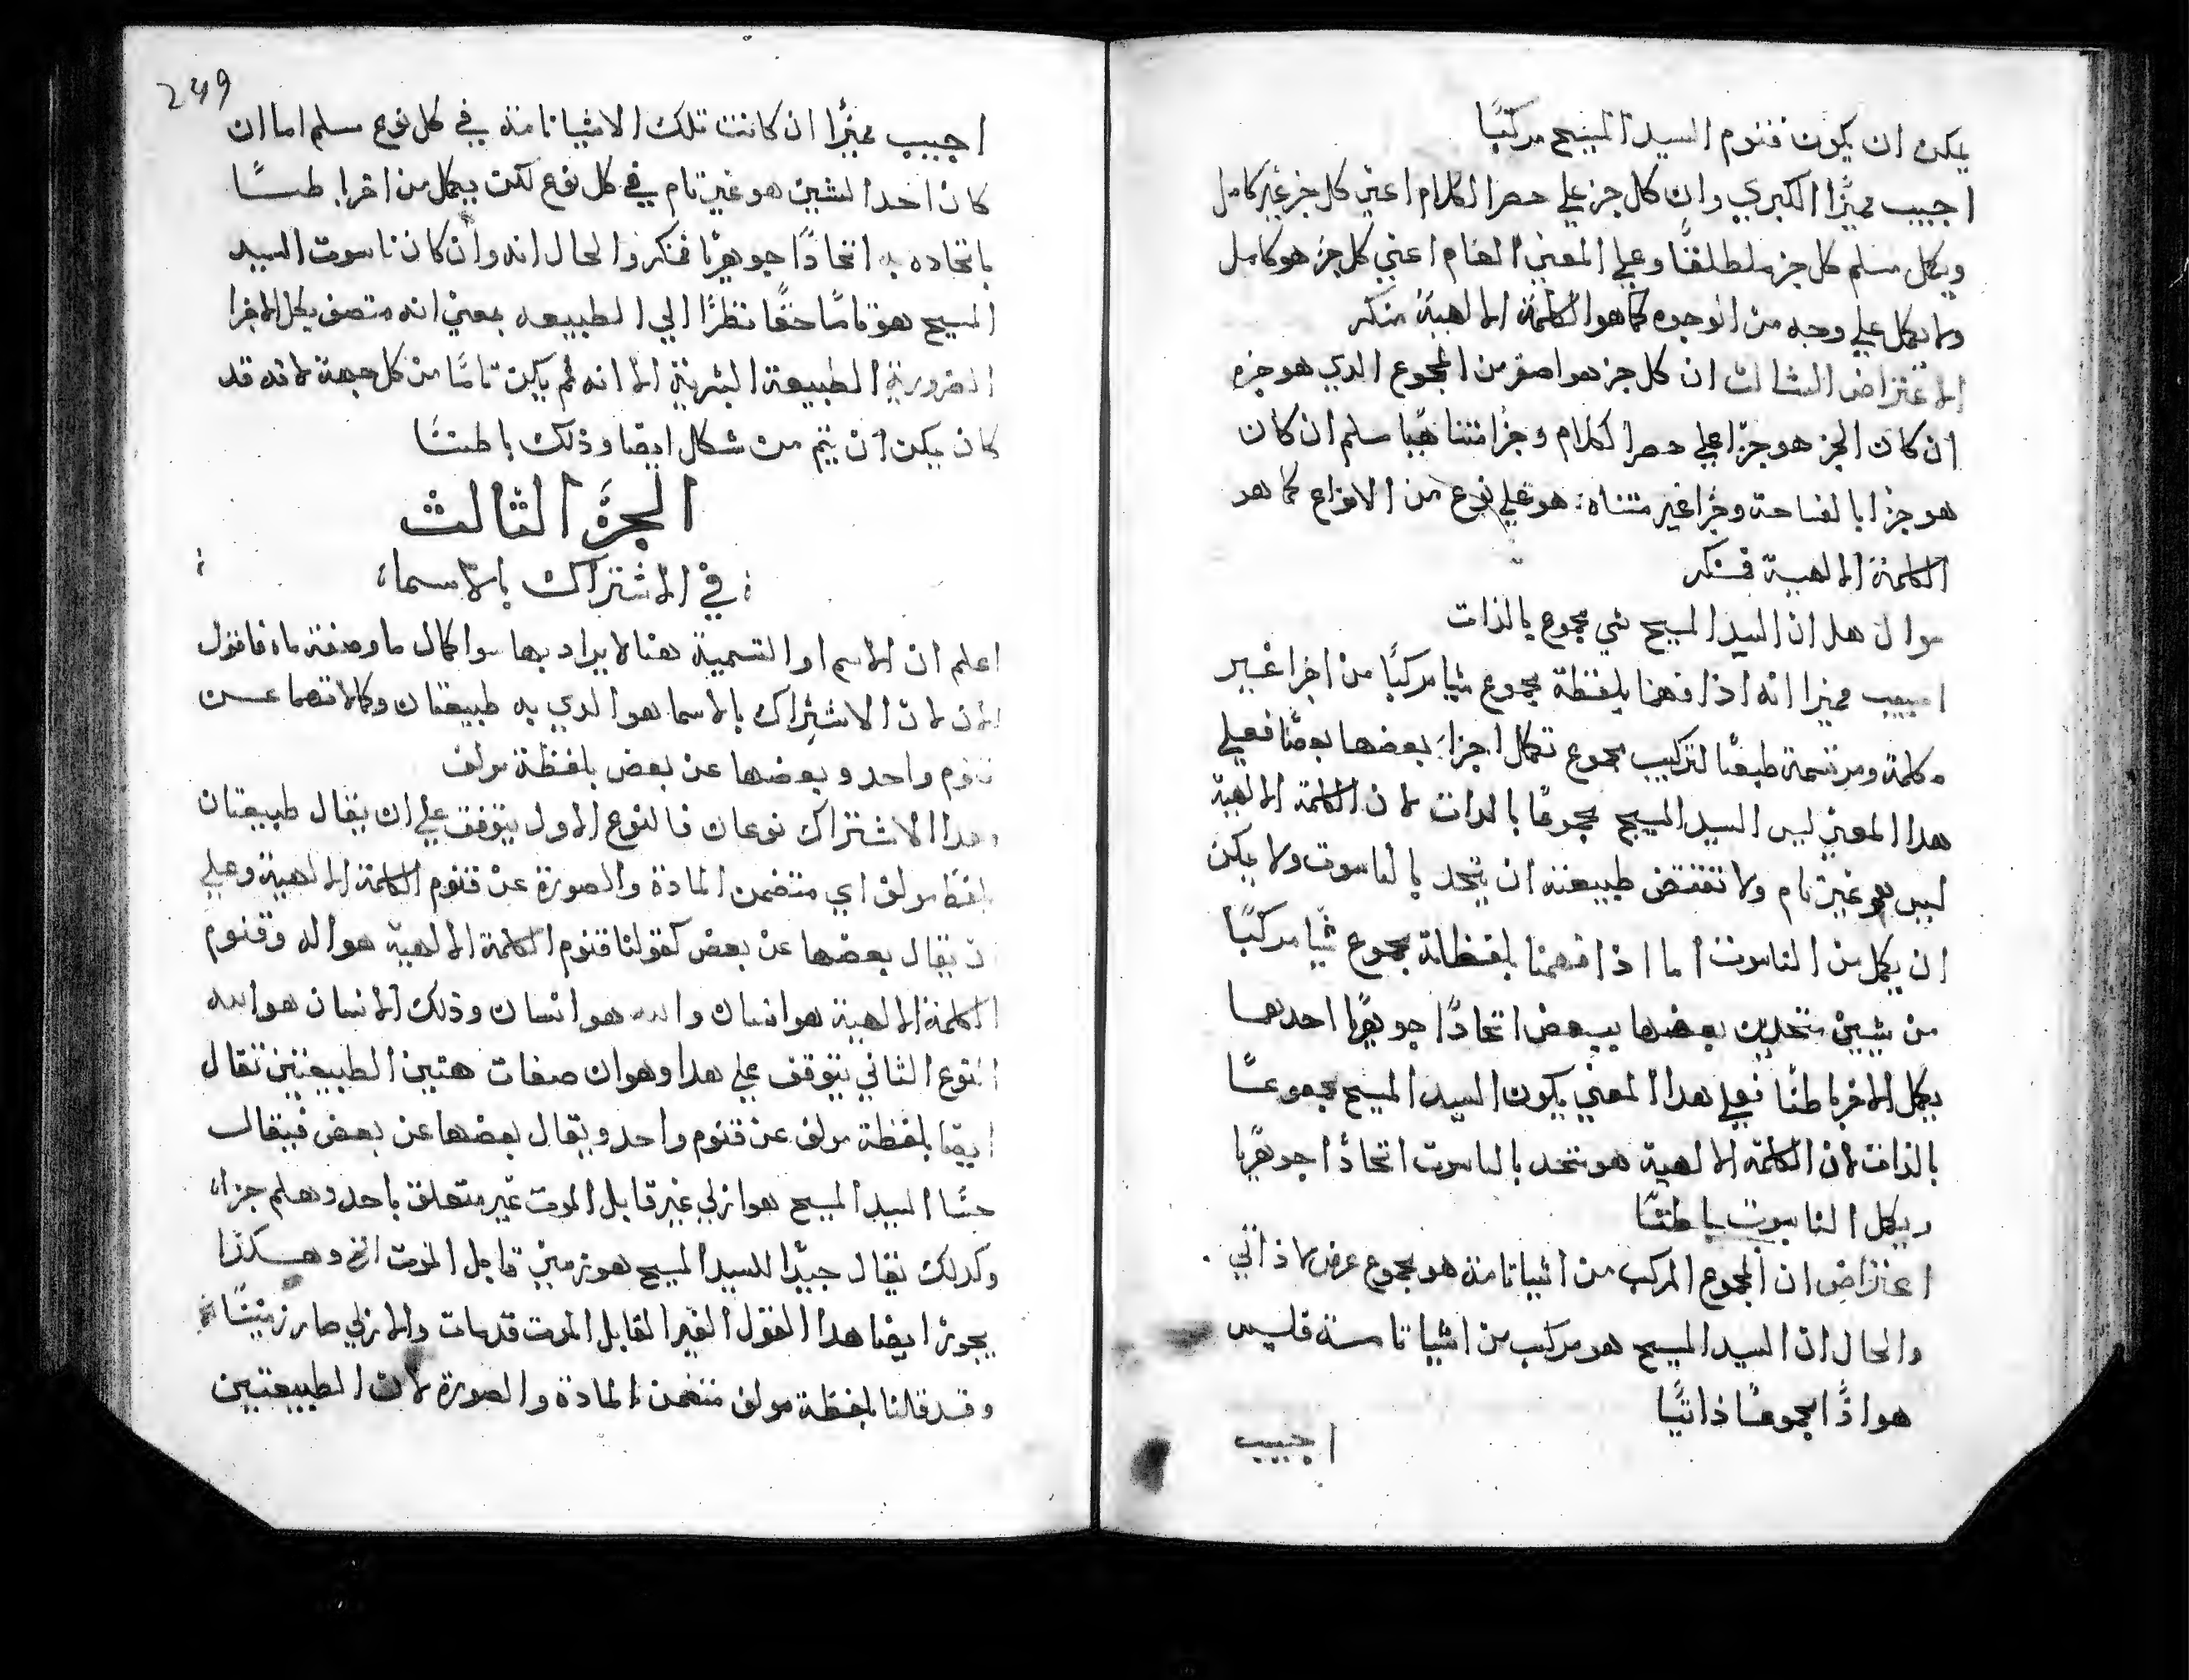 يمكن ان يكون قنوم السيد المسيح مركبًا
اجيب مميزًا الكبري وان كل جز علي حصر الكلام اعني كل جز غير كامل
ويكمل مسلم كل جز مطلقًا وعلي المعني العام اعني كل جز هو كامل
ولا يكمل علي وجه من الوجوه كما هو الكلمة الالهية منكر
الاعتراض الثالث ان كل جز هو اصغر من المجموع الدي هو جزه
ان كان الجز هو جزا علي حصر الكلام وجزا متناهيًا مسلم ان كان
هو جزا بالفساحة وجزا غير متناه هو علي نوع من الانواع كما هو
الكلمة الالهية فمنكر
سوال هل ان السيد المسيح شي مجموع بالذات
اجيب مميزا انه اذا فهمنا بلفظة مجموع شيا مركبًا من اجزا غير
مكلمة ومرتسمة طبعًا لتركيب مجموع تكمل اجزاء بعضها بعضًا فعلي
هدا المعني ليس السيد المسيح مجموعًا بالدات لان الكلمة الالهية
ليس هو غير تام ولا تقتضي طبيعته ان يتحد بالناسوت ولا يمكن
ان يكمل من الناسوت اما اذا فهمنا بلفظة مجموع شيًا مركبًا
من شيين متحدين بعضها ببعض اتحادًا جوهريًا احدهما
يكمل الاخر باطنًا فعلي هدا المعني يكون السيد المسيح مجموعًا
بالذات لان الكلمة الالهية هو متحد بالناسوت اتحادًا جوهريًا
ويكمل الناسوت باطنًا
اعتراض ان المجموع المركب من اشيا تامة هو مجموع عرض لا ذاتي
والحال ان السيد المسيح هو مركب من اشيا تامة فليس
هو اذًا مجموعًا ذاتيًا
اجيب
249
اجيب مميزًا ان كانت تلك الاشيا تامة في كل نوع مسلم اما ان
كان احد الشيين هو غير تام في كل نوع لكن يكمل من اخر باطنًا
باتحاده به اتحادًا جوهريًا فمنكر والحال انه وان كان ناسوت السيد
المسيح هو تامًا حقًا نظرًا الي الطبيعه بمعني انه متصف بكل الاجزا
الضرورية الطبيعة البشرية الا انه لم يكن تامًا من كل جهة لانه قد
كان يمكن ان يتم من شكل ايضا وذلك باطنًا
الجزؤ الثالث
في الاشتراك بالاسماء
اعلم ان الاسم او التسمية هنا لا يراد بها سوا كمال ما وصفة ما فاقول
الان لان الاشتراك بالاسما هو الدي به طبيعتان وكمالاتهما عن
قنوم واحد وبعضها عن بعض بلفظة مولف
وهدا الاشتراك نوعان فالنوع الاول يتوقف علي ان يقال طبيعتان
لفظا مولف اي متضمن المادة والصورة عن قنوم الكلمة الالهية وعلي
ان يقال بعضها عن بعض كقولنا قنوم الكلمة الالهية هو اله وقنوم
الكلمة الالهية هو انسان والله هو انسان وذلك الانسان هو الله
النوع الثاني يتوقف علي هدا وهو ان صفات هتين الطبيعتين تقال
ايضا بلفظة مولف عن قنوم واحد ويقال بعضها عن بعض فيقال
حسًا السيد المسيح هو ازلي غير قابل الموت غير متعلق باحد وهلم جراء
وكدلك يقال جيدًا للسيد المسيح هو زمني قابل الموت الخ وهكذا
يجوز ايضا هدا القول الغير القابل الموت قد مات والازلي صار زمنيًا
وقد قلنا بلفظة مولف متضمن المادة والصورة لان الطبيعتين